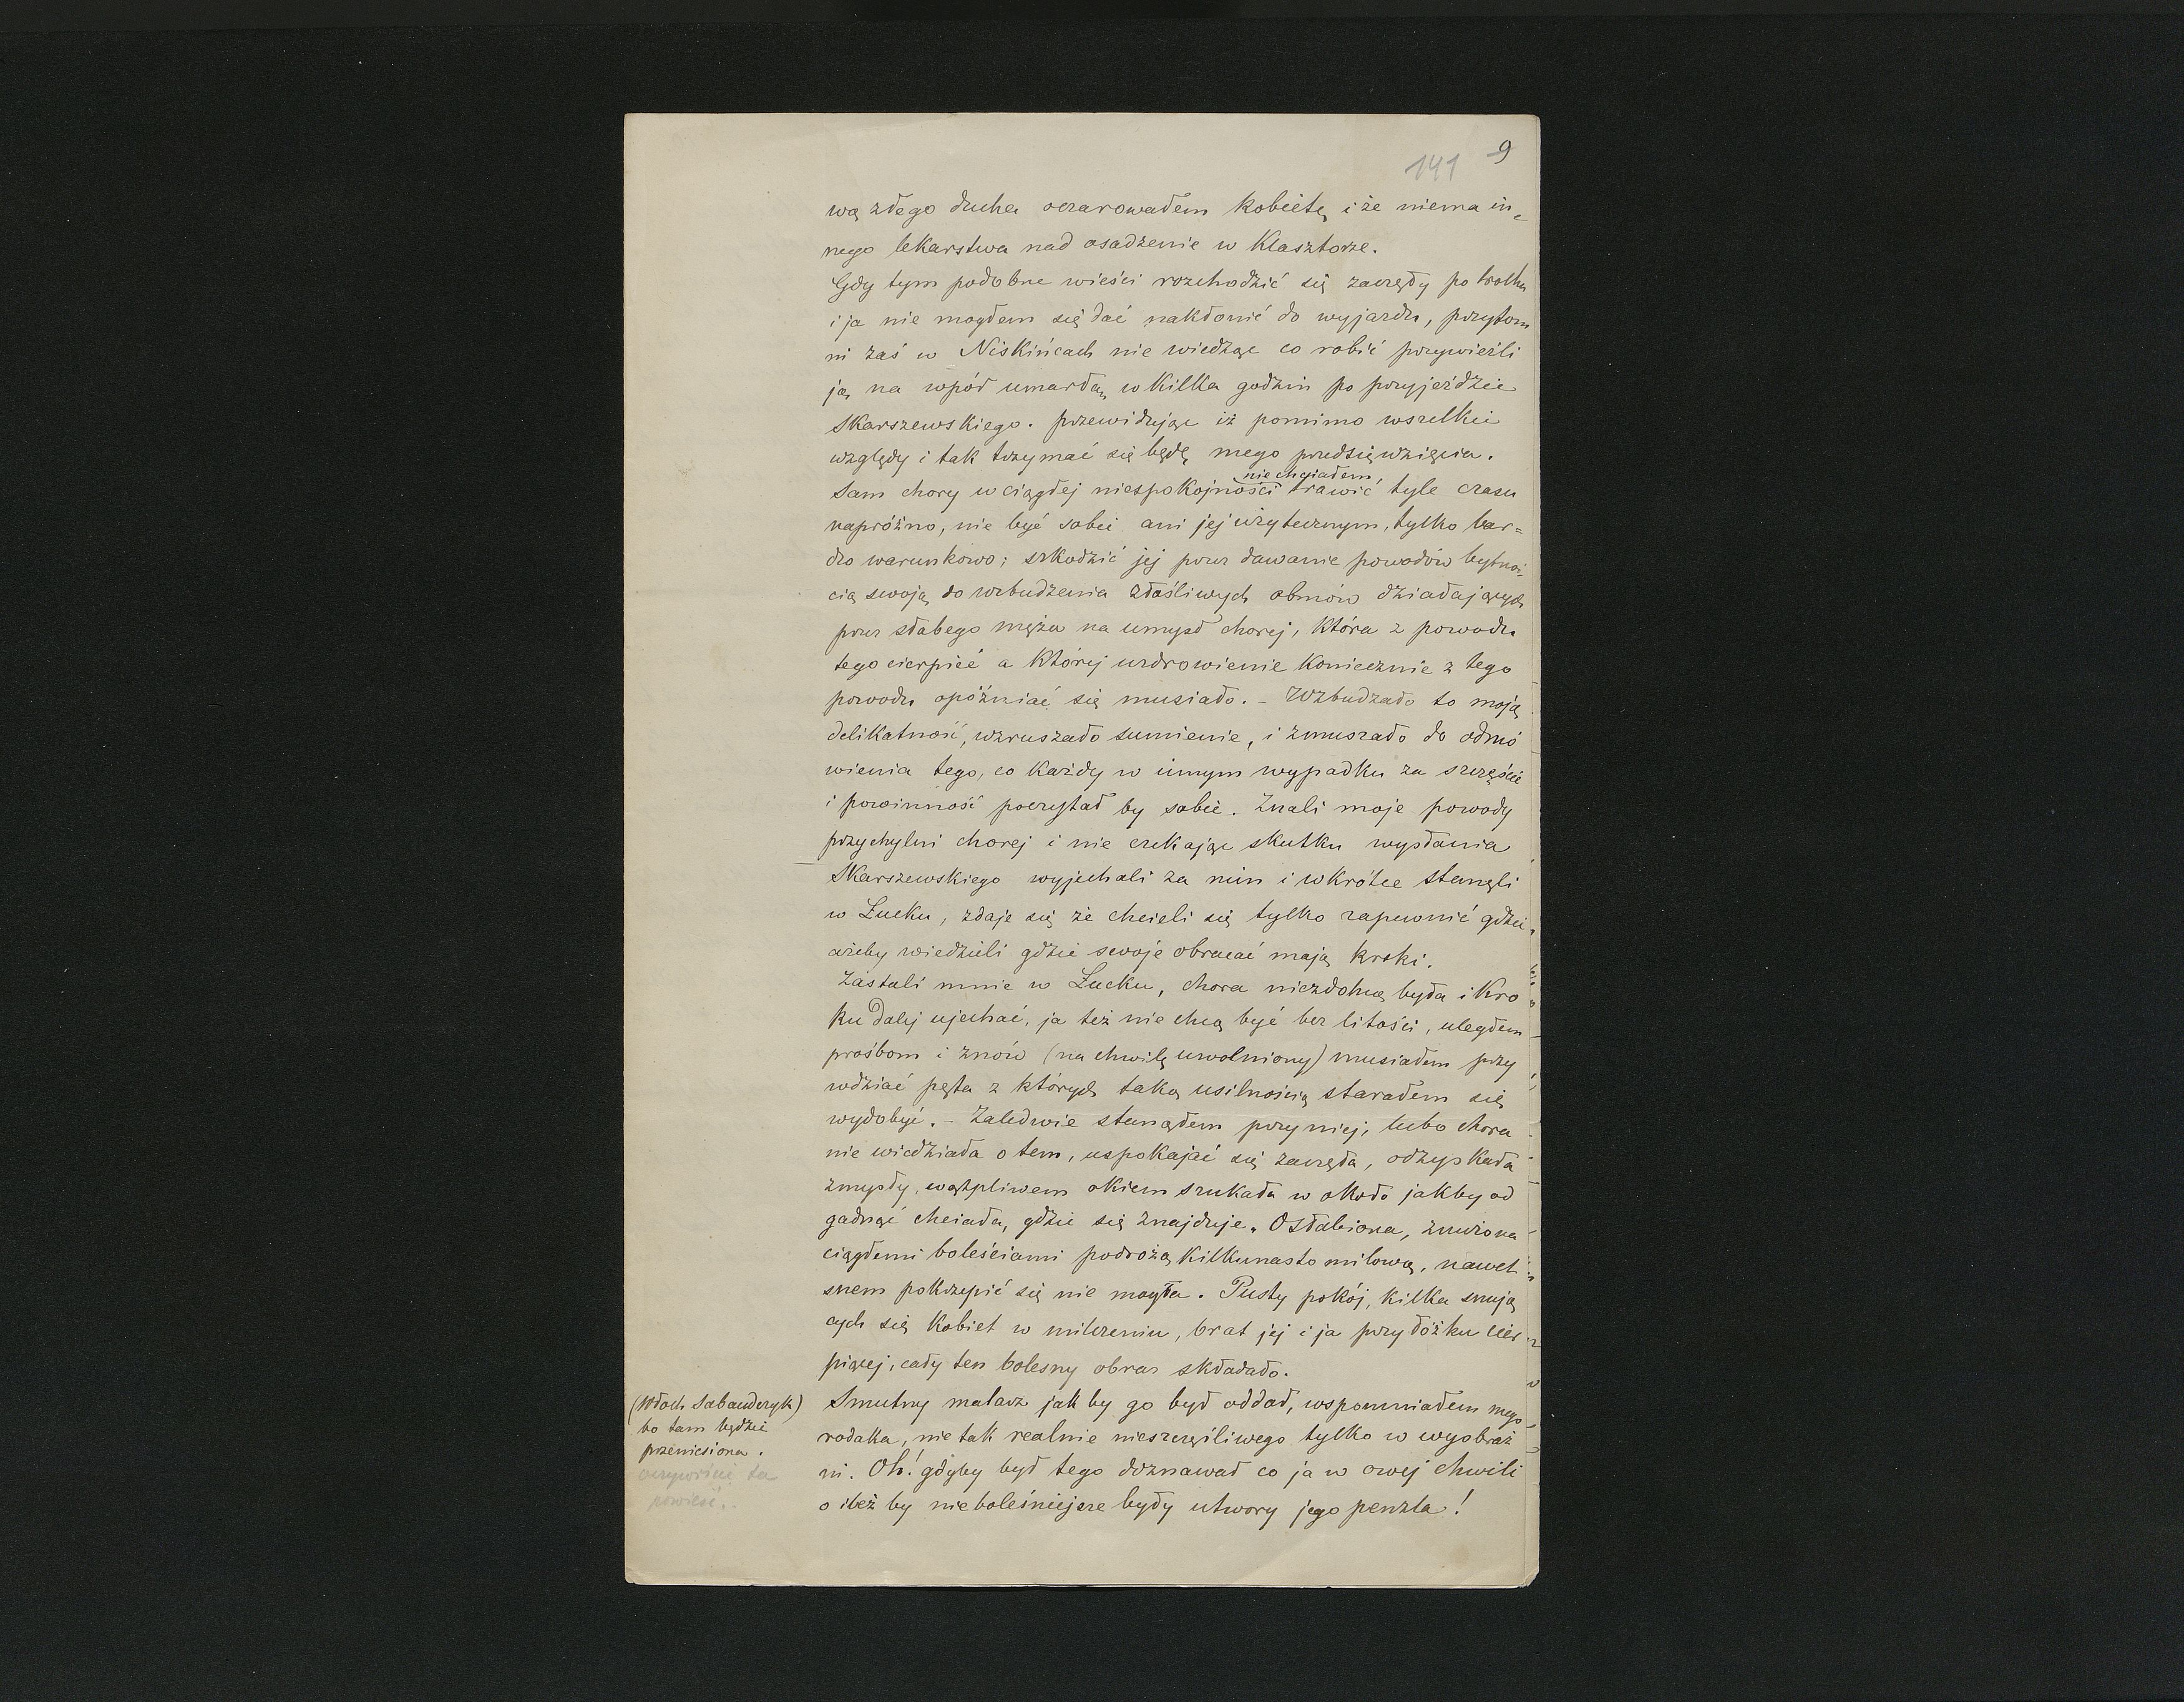 141 9
wą złego ducha oczarowałem kobietę i że niema in-
nego lekarstwa nad osadzenie w Klasztorze.
Gdy tym podobne wieści rozchodzić się zaczęły po trochu
i ja nie mogłem się dać nakłonić do wyjazdu, przytom
ni zaś w Niskińcach nie wiedząc co robić przywieźli
ją na wpół umarłą w kilka godzin po przyjeździe
Skarszewskiego. przewidując iż pomimo wszelkie
względy i tak trzymać się będę mego przedsięwzięcia.
nie chciałem,
Sam chory w ciągłej niespokojności trawić tyle czasu
napróżno, nie być sobie ani jej użytecznym, tylko bar=
dzo warunkowo; szkodzić jej przez dawanie powodów bytnoś-
cią swoją do wzbudzenia złośliwych obmów działających
przez słabego męża na umysł chorej, która z powodu
tego cierpieć a której uzdrowienie koniecznie z tego
powodu opóźniać się musiało. - Wzbudzało to moją
delikatność, wzruszało sumienie, i zmuszało do odmó
wienia tego, co każdy w innym wypadku za szczęście
i powinność poczytał by sobie. Znali moje powody
przychylni chorej i nie czekając skutku wysłania
Skarszewskiego wyjechali za nim i wkrótce stanęli
w Łucku, zdaje się że chcieli się tylko zapewnić gdzie
ażeby wiedzieli gdzie swoje obracać mają kroki.
Zastali mnie w Łucku, chora niezdolną była i kro
ku dalej ujechać, ja też nie chcą być bez litości, uległem
prośbom i znów (na chwilę uwolniony) musiałem przy
wdziać pęta z których taką usilnością starałem się
wydobyć. - Zaledwie stanąłem przy niej, lubo chora
nie wiedziała o tem, uspokajać się zaczęła, odzyskała
zmysły, wątpliwem okiem szukała w około jakby od
gadnąć chciała, gdzie się znajduje. Osłabiona, znużona
ciągłemi boleściami podróżą kilkunasto milową, nawet
snem pokrzepić się nie mogła. Pusty pokój, kilka snują
cych się kobiet w milczeniu, brat jej i ja przy łóżku cier
piącej, cały ten bolesny obraz składało.
Smutny malarz jak by go był oddał, wspomniałem mego
rodaka, nie tak realnie nieszczęśliwego tylko w wyobraź
ni. Oh! gdyby był tego doznawał co ja w owej chwili
o ileż by nie boleśniejsze były utwory jego penzla!
(Włoch Sabaudczyk)
bo tam będzie
przeniesiona.
oczywiście ta
powieść.